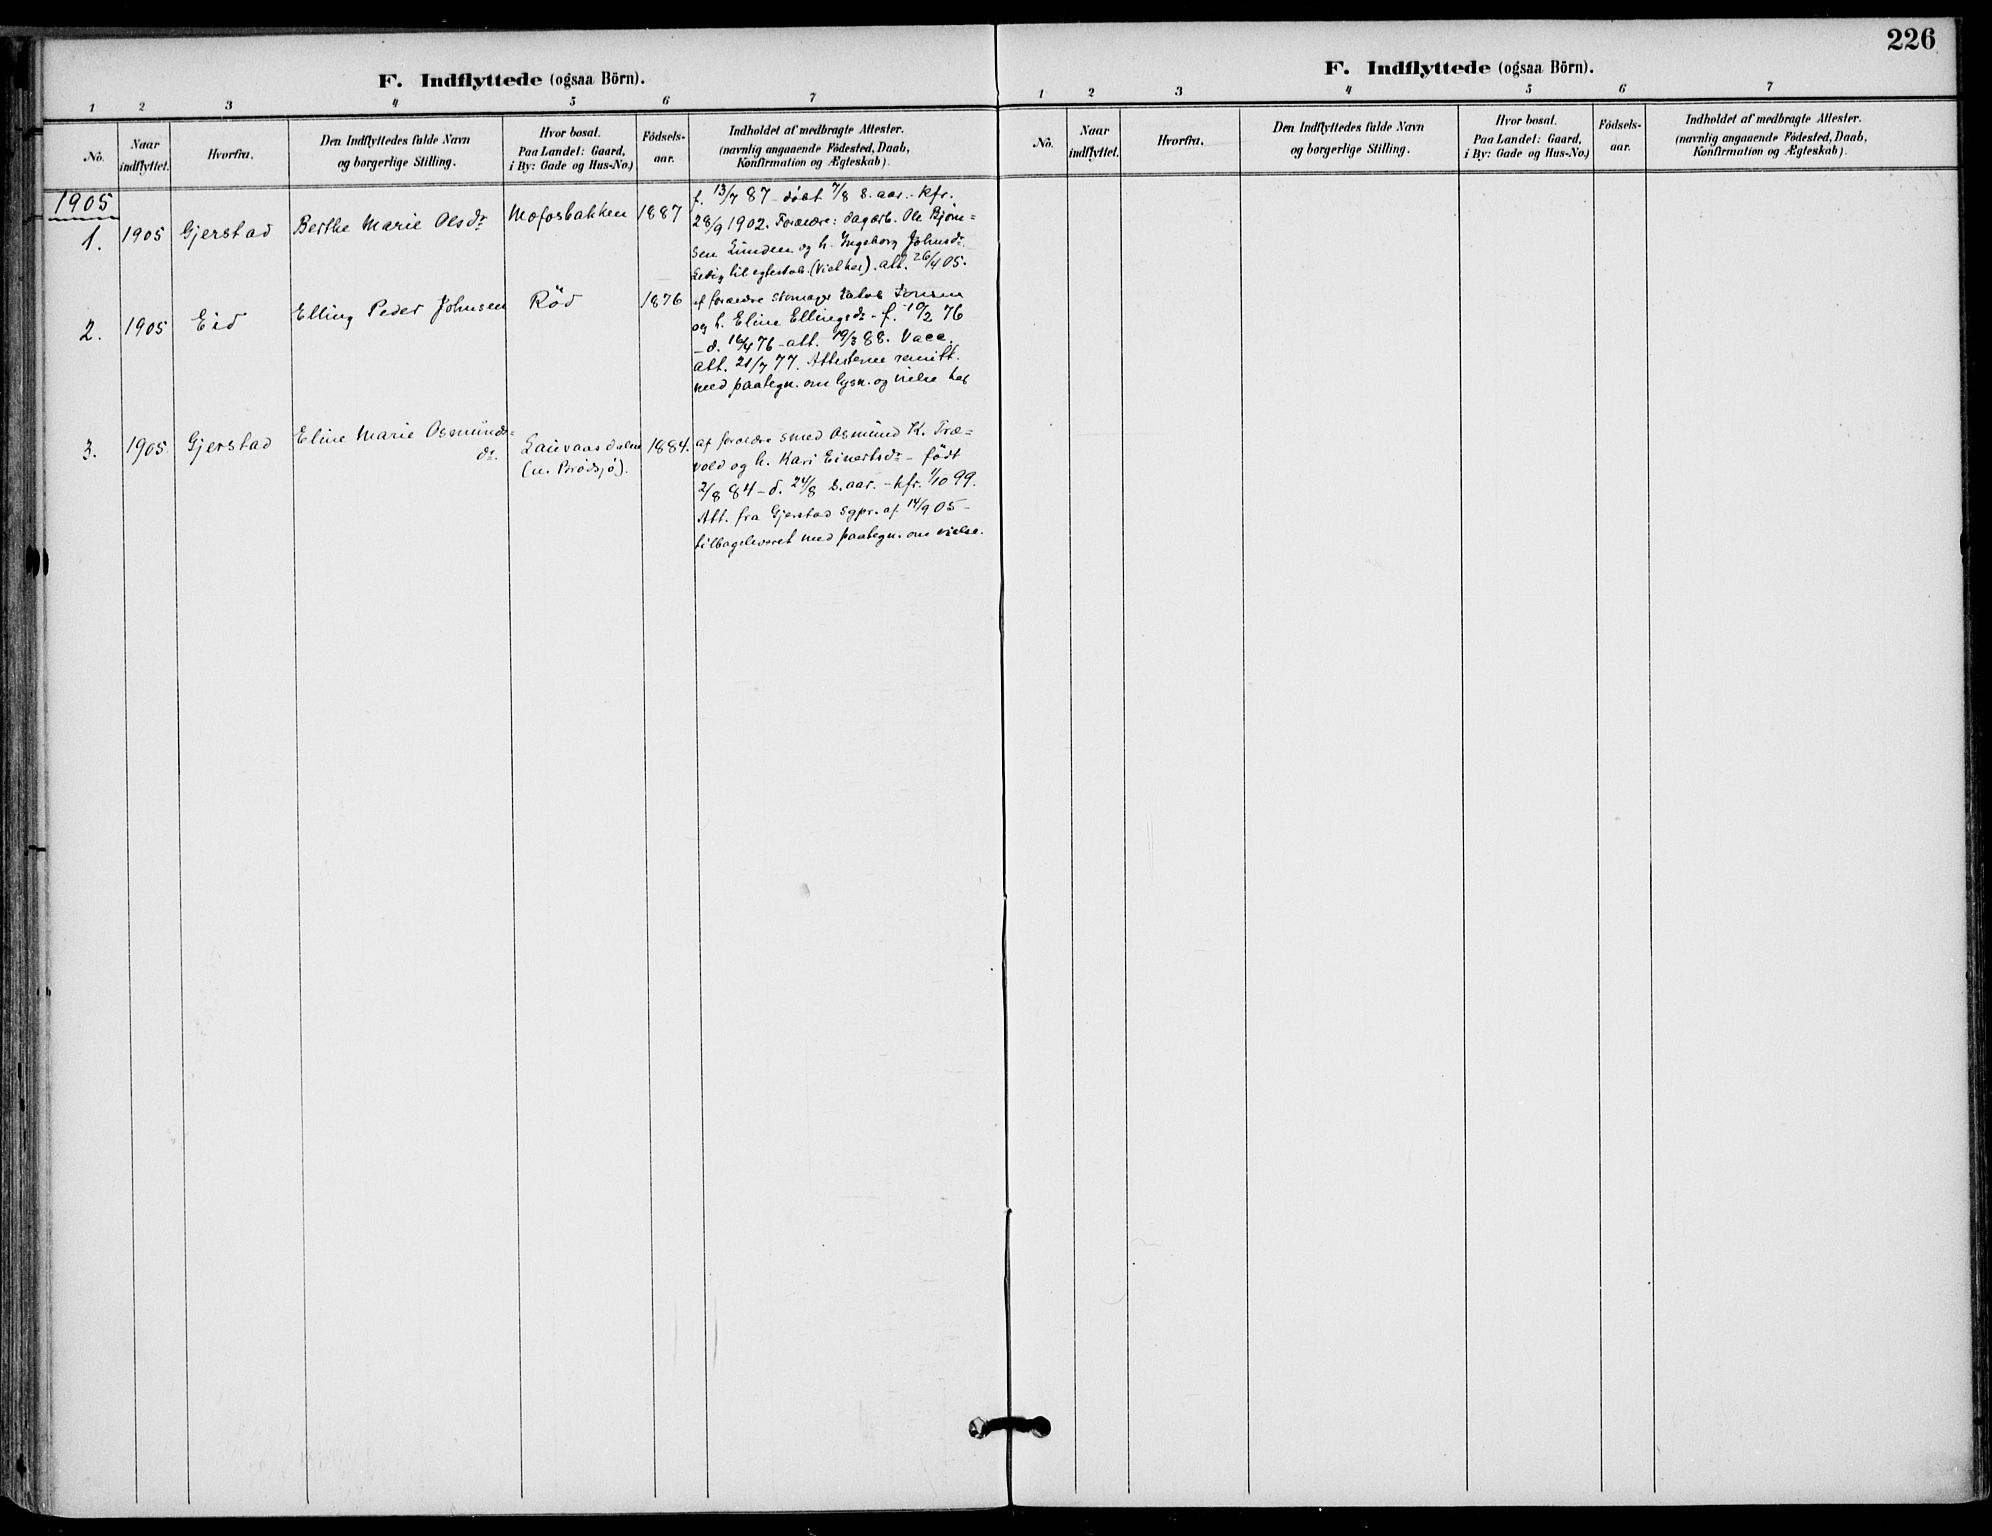 226
F. Indflyttede (ogsaa Börn).
1 2 3 4 5 6 7
No.
Naar
indflyttet.
Hvorfra.
Den Indflyttedes fulde Navn
og borgerlige Stilling.
Hvor bosat.
Paa Landet: Gaard,
i By: Gade og Hus-No.)
Födsels-
aar.
Indholdet af medbragte Attester.
(navnlig angaaende Födested, Daab,
Konfirmation og Ægteskab).
1905
1.
1905
Gjerstad
Berthe Marie Olsdr
Mofosbakken
1887
f. 13/7 87 - döbt 7/8 s. aar. - kfr.
28/9 1902. Forældre: dagarb. Ole Bjørn=
sen Lunden og h. Ingeborg Johnsdr.
Ledig til egteskab. (Viet her). att. 26/4 05.
2.
1905
Eid
Elling Peder Johnsen
Röd
1876
af forældre Jonsen
og h. Eline Ellingsdr - f. 10/2 76
- d. 16/4 76 - att. 19/3 88. Vacc.
att. 21/7 77. Attesterne remitt.
med paategn. om lysn. og vielse her
3.
1905
Gjerstad
Eline Marie Osmunds=
dr.
Lauvaasdalen
(u. Brödsjö).
1884.
af forældre smed Osmund K. Træ=
vold og h. Kari Einertsdr - födt
2/8 84 - d. 24/8 s. aar. - kfr. 1/10 99.
Att. fra Gjerstad sgpr. af 14/9 05 -
tilbageleveret med paategn. om vielse.
F. Indflyttede (ogsaa Börn).
1 2 3 4 5 6 7
No.
Naar
indflyttet.
Hvorfra.
Den Indflyttedes fulde Navn
og borgerlige Stilling.
Hvor bosat.
Paa Landet: Gaard,
i By: Gade og Hus-No.)
Födsels-
aar.
Indholdet af medbragte Attester.
(navnlig angaaende Födested, Daab,
Konfirmation og Ægteskab).